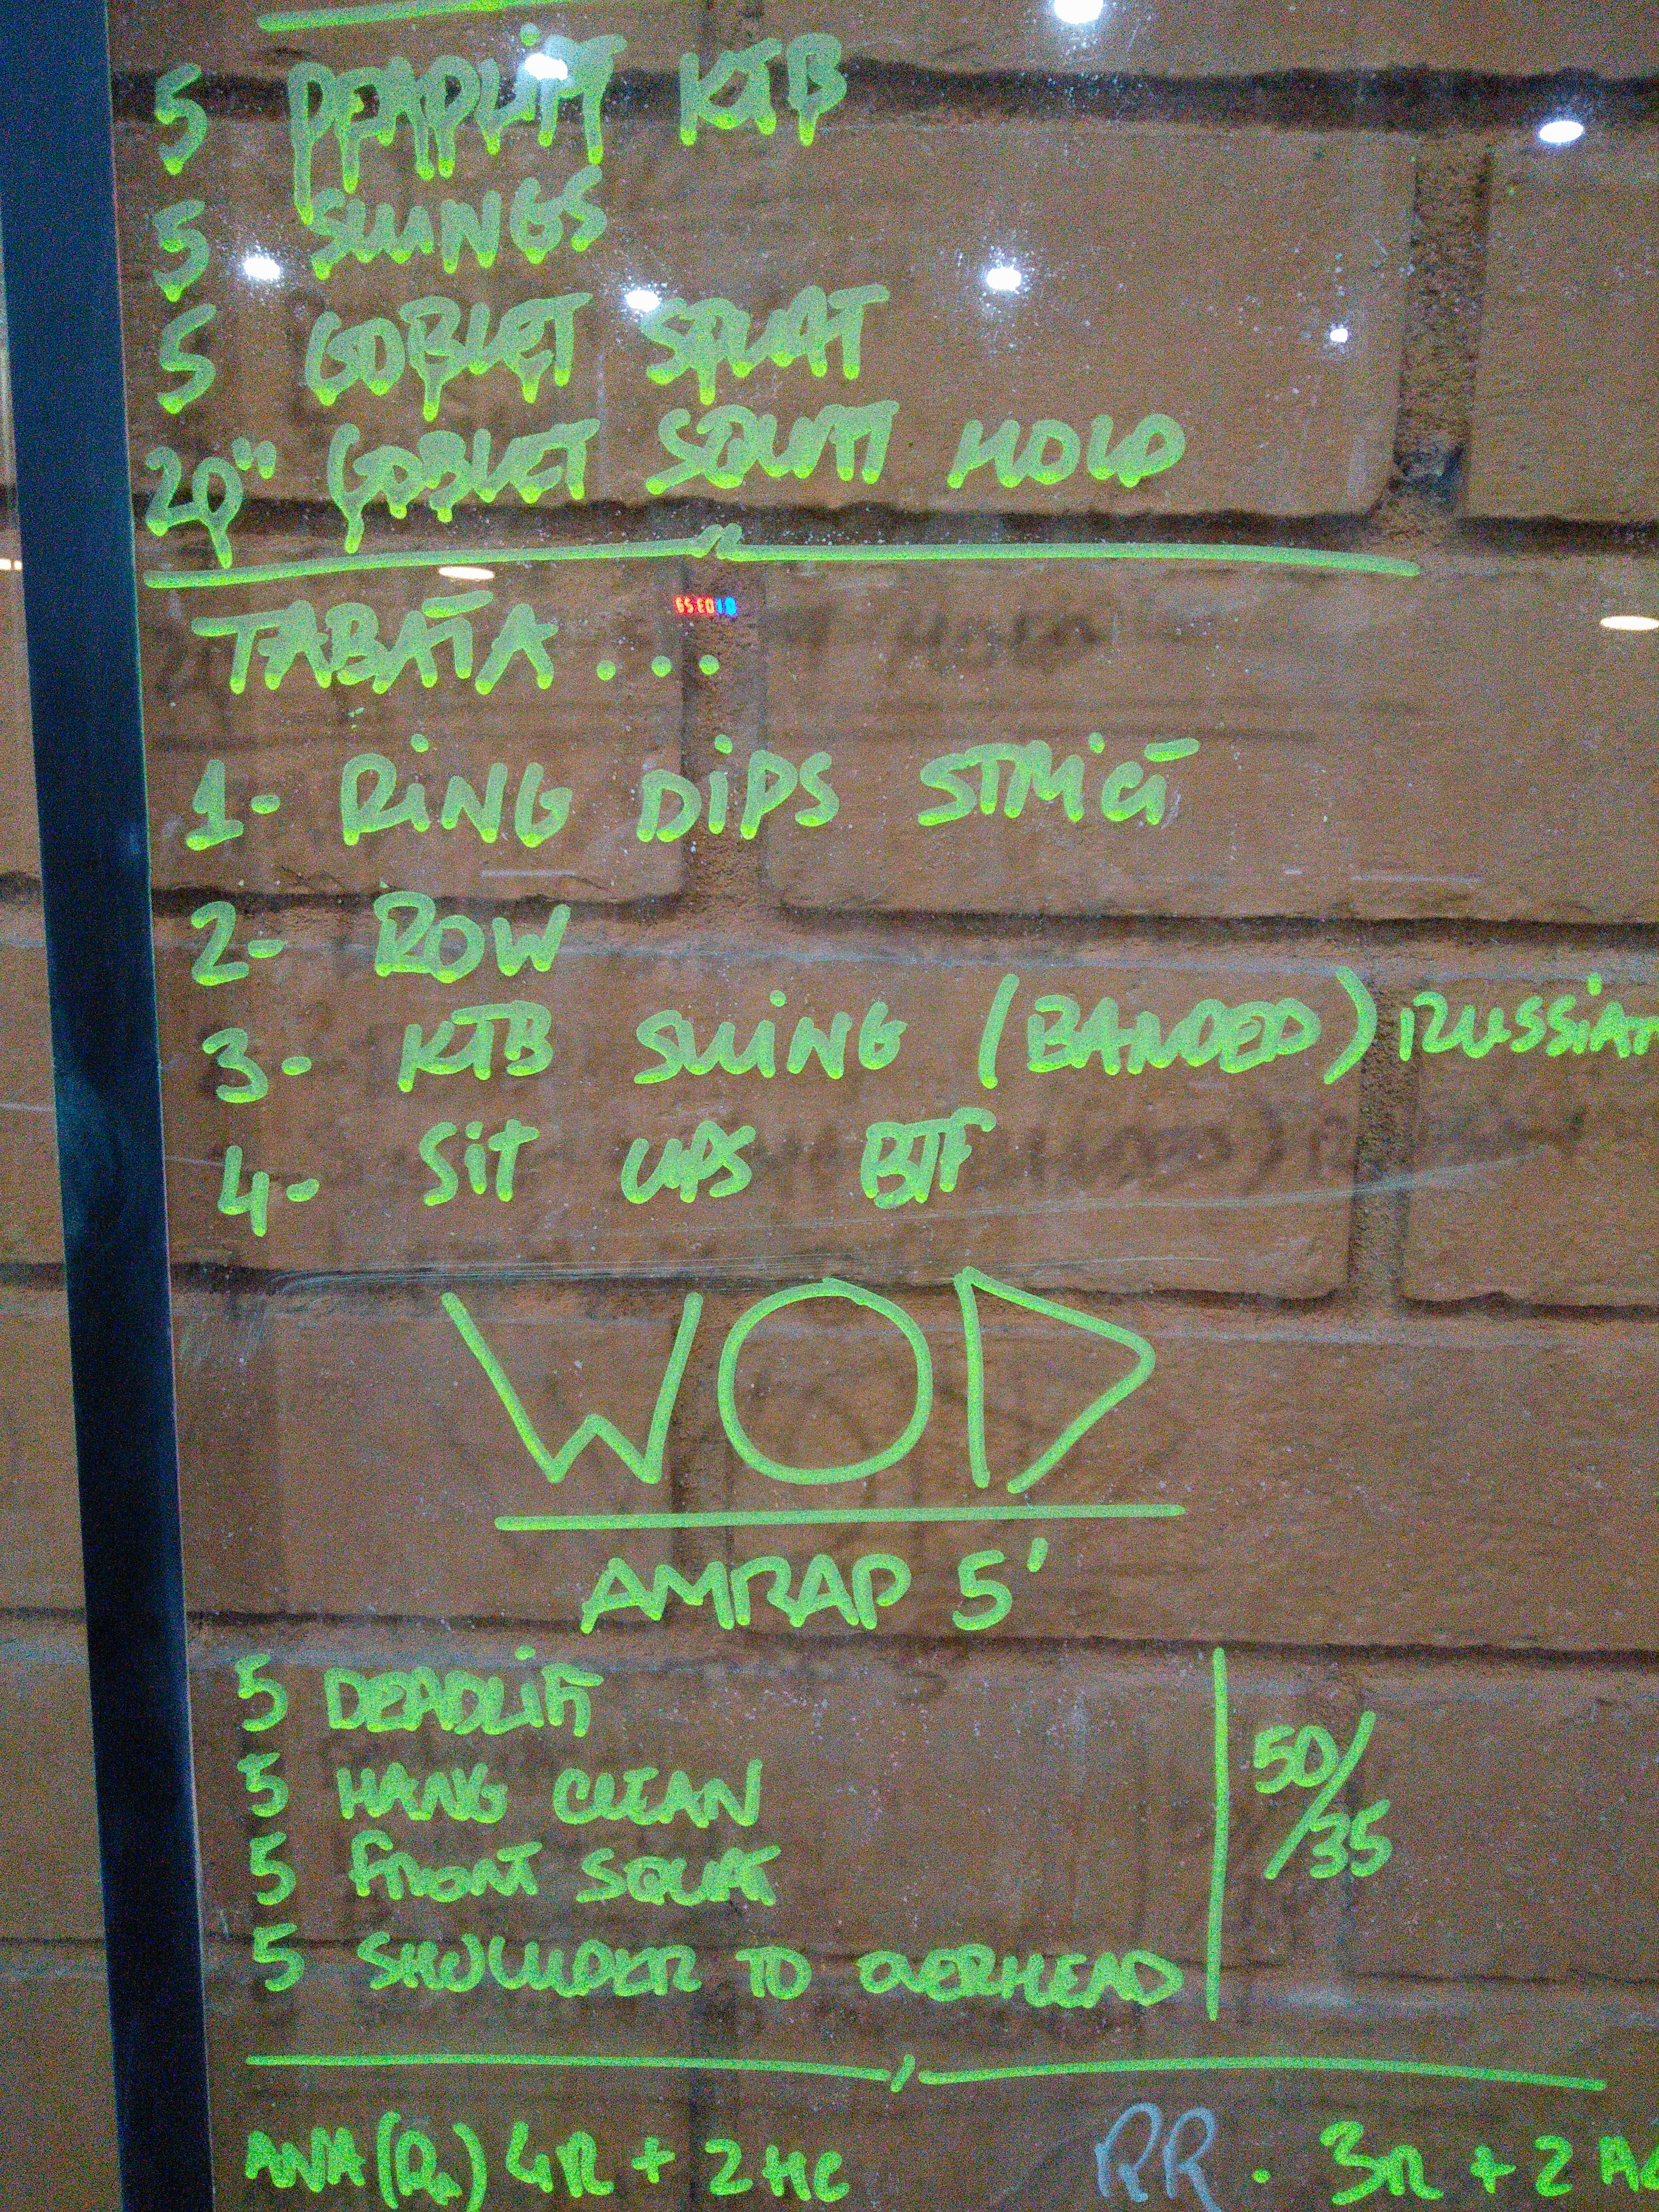 5 DEADLIFT KTB
5 SWINGS
5 GOBLET SQUAT
20" GOBLET SQUAT HOLD
TABATA ...
1- RING DIPS STRICT
2- ROW
3- KTB SWING (BANDED) RUSSIAN
4- SIT UPS BTF
WOD
AMRAP 5'
5 DEADLIFT
5 HANG CLEAN
5 FRONT SQUAT
5 SHOULDER TO OVERHEAD
50/35
ANA (Rx) 4R + 2HC RR . 3R + 2